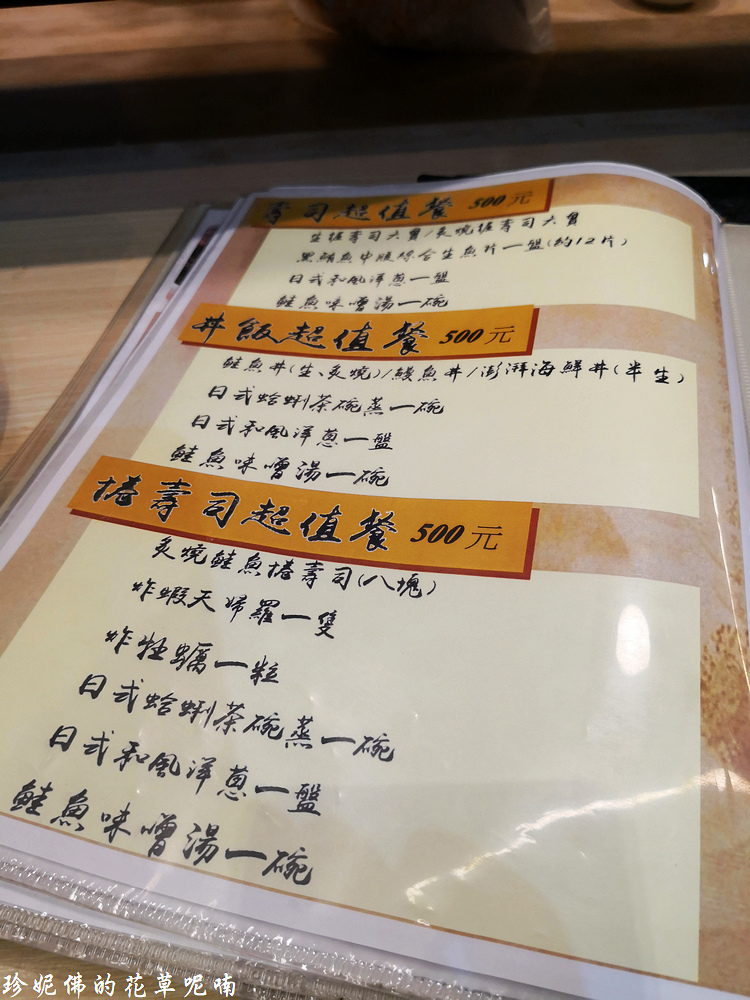 壽司超值餐 500元
生握壽司六貫/炙燒握壽司六貫
黑鮪魚中腹綜合生魚片一盤(約12片)
日式和風洋蔥一盤
鮭魚味噌湯一碗
丼飯超值餐 500元
鮭魚丼(生、炙燒)/鰻魚丼/澎湃海鮮丼(半生)
日式蛤蜊茶碗蒸一碗
日式和風洋蔥一盤
鮭魚味噌湯一碗
捲壽司超值餐 500元
炙燒鮭魚捲壽司(八塊)
炸蝦天婦羅一隻
炸牡蠣一粒
日式蛤蜊茶碗蒸一碗
日式和風洋蔥一盤
鮭魚味噌湯一碗
珍妮佛的花草呢喃